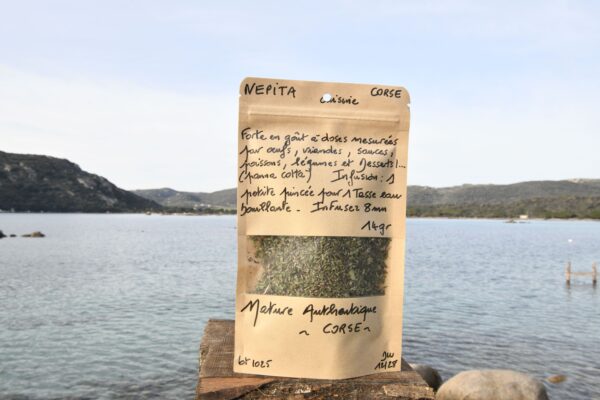 NEPITA CORSE
Cuisine
Forte en goût à doses mesurées
pour œufs, viandes, sauces,
poissons, légumes et Desserts!...
(panna cotta) Infusion: 1
petite pincée pour 1 Tasse eau
bouillante. Infusez 8 mn
14gr
Nature Authentique
~ CORSE ~
lot 1025